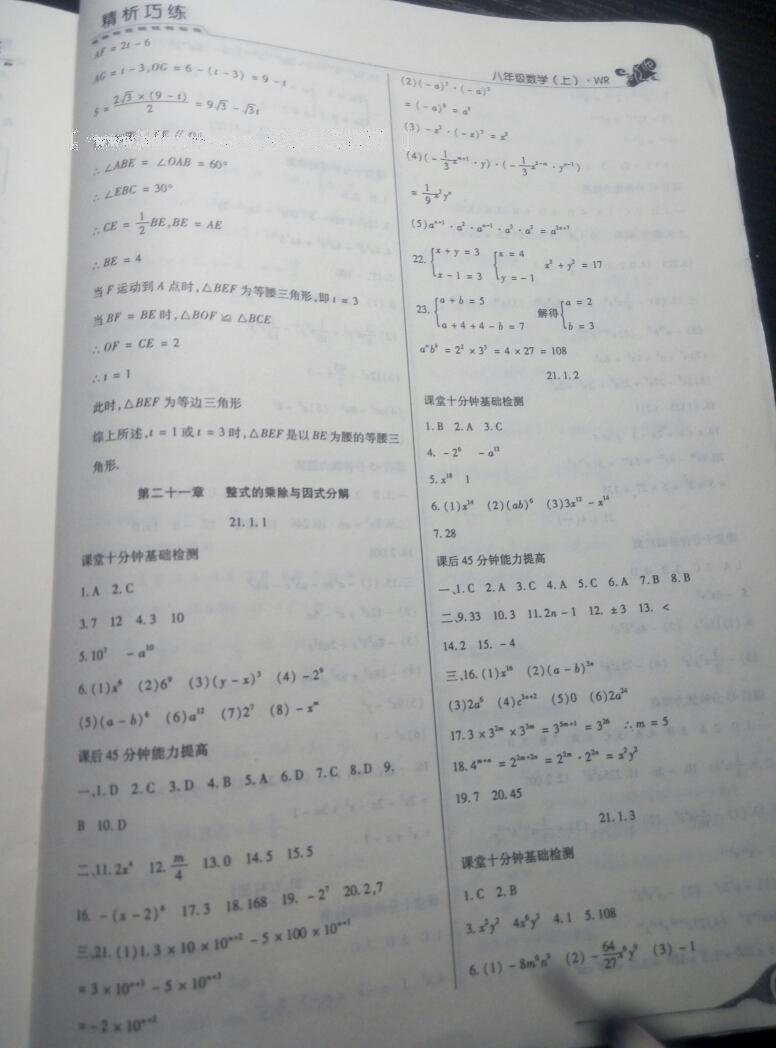 精析巧练
八年级数学(上)·WR
AF = 2t - 6
AG = t - 3, OG = 6 - (t - 3) = 9 - t
S = \frac{2\sqrt{3} × (9 - t)}{2} = 9\sqrt{3} - \sqrt{3}t
∴∠ABE = ∠OAB = 60°
∴∠EBC = 30°
∴CE = \frac{1}{2}BE, BE = AE
∴BE = 4
当 F 运动到 A 点时,△BEF 为等腰三角形,即 t = 3
当 BF = BE 时,△BOF ≌ △BCE
∴OF = CE = 2
∴t = 1
此时,△BEF 为等边三角形
综上所述,t = 1 或 t = 3 时,△BEF 是以 BE 为腰的等腰三
角形.
第二十一章 整式的乘除与因式分解
21.1.1
课堂十分钟基础检测
1.A 2.C
3.7 12 4.3 10
5.10⁷ -a¹⁰
6.(1)x⁶ (2)6⁹ (3)(y-x)⁵ (4)-2⁹
(5)(a-b)⁶ (6)a¹² (7)2⁷ (8)-xᵐ
课后 45 分钟能力提高
一、1.D 2.C 3.D 4.B 5.A 6.D 7.C 8.D 9.
B 10.D
二、11.2x⁴ 12.\frac{m}{4} 13.0 14.5 15.5
16.-(x-2)⁶ 17.3 18.168 19.-2⁷ 20.2,7
三、21.(1)1.3 × 10 × 10ⁿ⁺² - 5 × 100 × 10ⁿ⁺¹
= 3 × 10ⁿ⁺³ - 5 × 10ⁿ⁺³
= -2 × 10ⁿ⁺³
(3)-x²·(-x)³ = x⁵
(4)(-\frac{1}{3}xᵐ⁺¹·y)·(-\frac{1}{3}x²⁻ᵐ·yⁿ⁻¹)
= \frac{1}{9}x³yⁿ
(5)aⁿ⁺¹·a²·aⁿ⁻¹·a³·a² = a²ⁿ⁺⁷
22.{x + y = 3 x - 1 = 3 {x = 4 y = -1 x² + y² = 17
23.{a + b = 5 a + 4 + 4 - b = 7 解得{a = 2 b = 3
aᵃbᵇ = 2² × 3³ = 4 × 27 = 108
21.1.2
课堂十分钟基础检测
1.B 2.A 3.C
4.-2⁶ -a¹²
5.x¹⁸ 1
6.(1)x¹⁴ (2)(ab)⁶ (3)3x¹² - x¹⁴
7.28
课后 45 分钟能力提高
一、1.C 2.A 3.C 4.A 5.C 6.A 7.B 8.B
二、9.33 10.3 11.2n-1 12.±3 13.<
14.2 15.-4
三、16.(1)x¹⁶ (2)(a-b)³ⁿ
(3)2a⁶ (4)c³ⁿ⁺² (5)0 (6)2a²⁴
17.3 × 3²ᵐ × 3³ᵐ = 3⁵ᵐ⁺¹ = 3²⁶ ∴m = 5
18.4ᵐ⁺ⁿ = 2²ᵐ⁺²ⁿ = 2²ᵐ·2²ⁿ = x²y²
19.7 20.45
21.1.3
课堂十分钟基础检测
1.C 2.B
3.x²y² 4x⁶y² 4.1 5.108
6.(1)-8m⁶n⁹ (2)-\frac{64}{27}x⁶y⁹ (3)-1